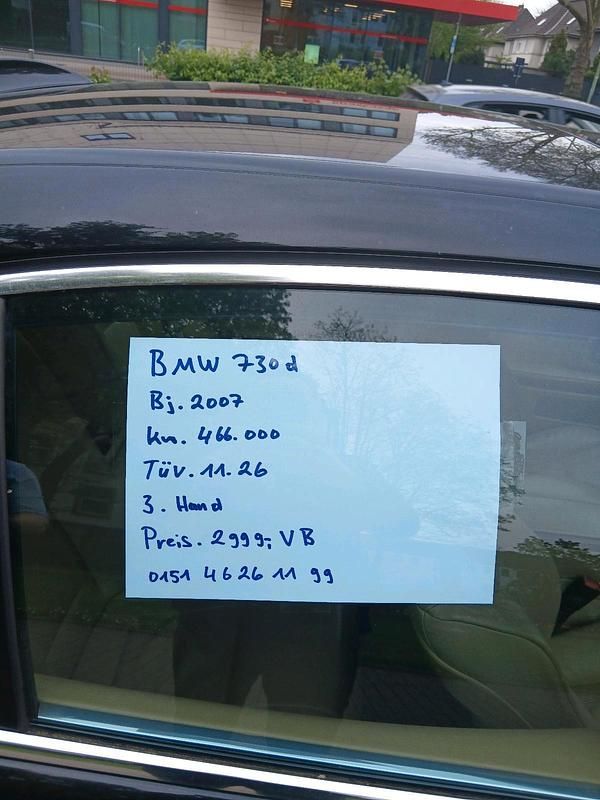 BMW 730d
Bj. 2007
km. 466.000
Tüv. 11.26
3. Hand
Preis. 2999,- VB
0151 46 26 11 99